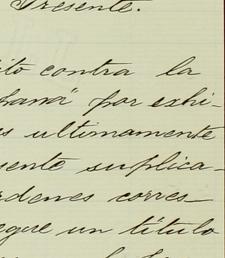 Presente.
ito contra la
hama" por exhi-
s ultimamente
sente suplica-
rdenes corres-
egue un título